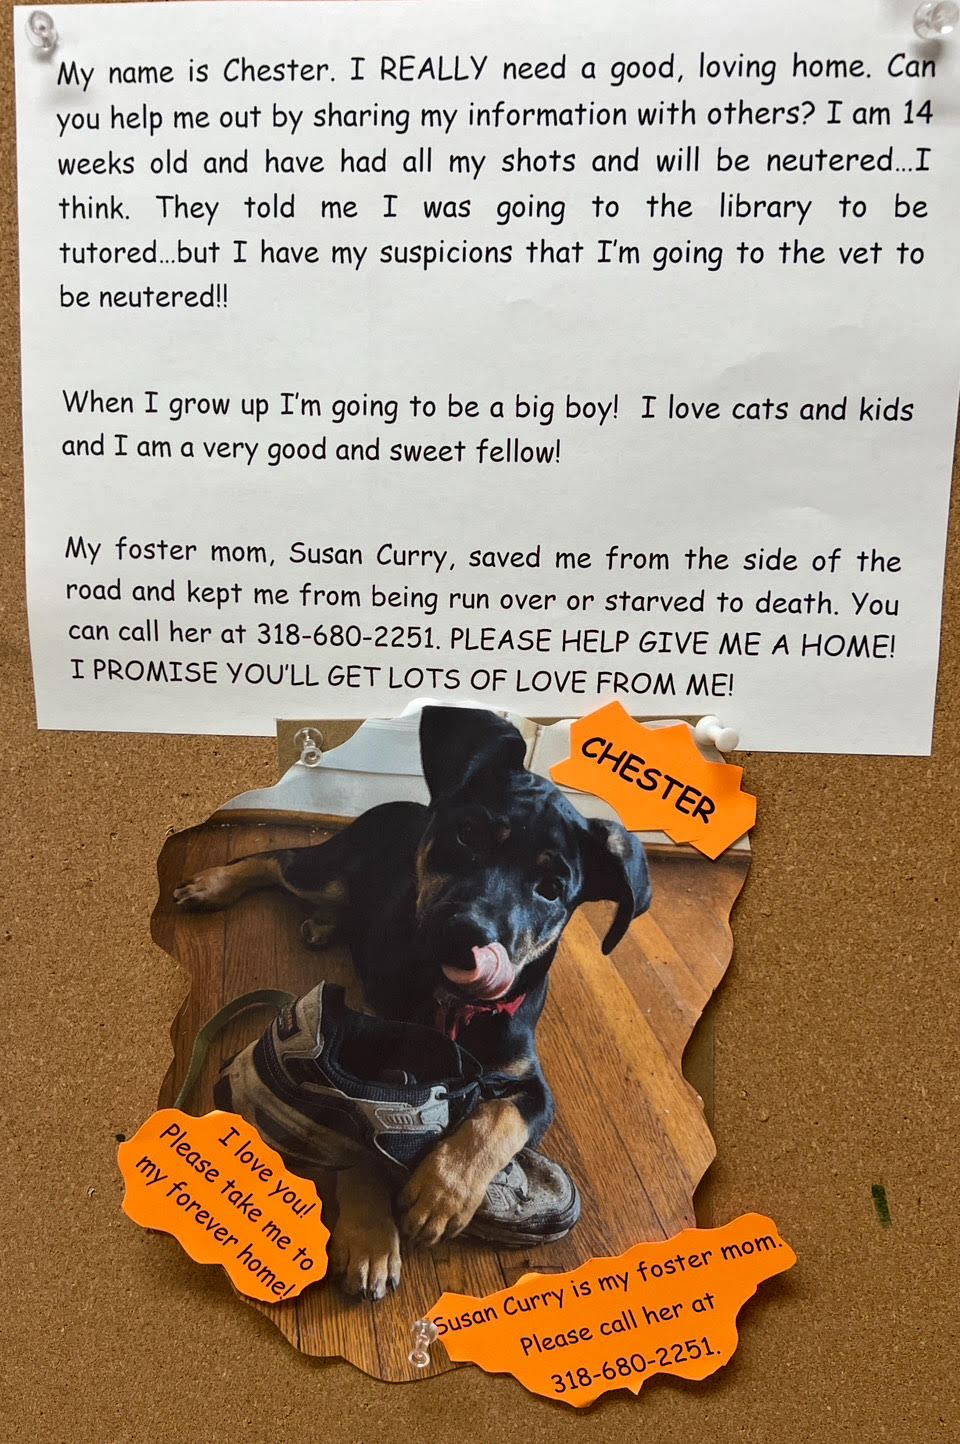 My name is Chester. I REALLY need a good, loving home. Can
you help me out by sharing my information with others? I am 14
weeks old and have had all my shots and will be neutered...I
think. They told me I was going to the library to be
tutored...but I have my suspicions that I'm going to the vet to
be neutered!!
When I grow up I'm going to be a big boy! I love cats and kids
and I am a very good and sweet fellow!
My foster mom, Susan Curry, saved me from the side of the
road and kept me from being run over or starved to death. You
can call her at 318-680-2251. PLEASE HELP GIVE ME A HOME!
I PROMISE YOU'LL GET LOTS OF LOVE FROM ME!
CHESTER
I love you!
Please take me to
my forever home!
Susan Curry is my foster mom.
Please call her at
318-680-2251.